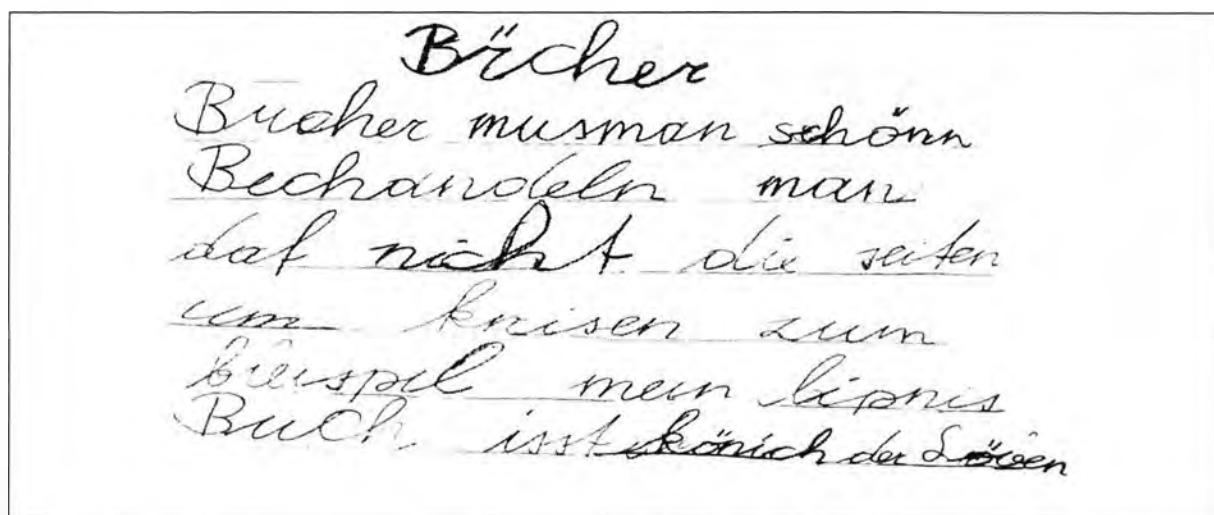 Bücher
Bucher musman schönn
Bechandeln man
daf nicht die seiten
um knisen zum
beispil mein lipnis
Buch isst könich der Löwen